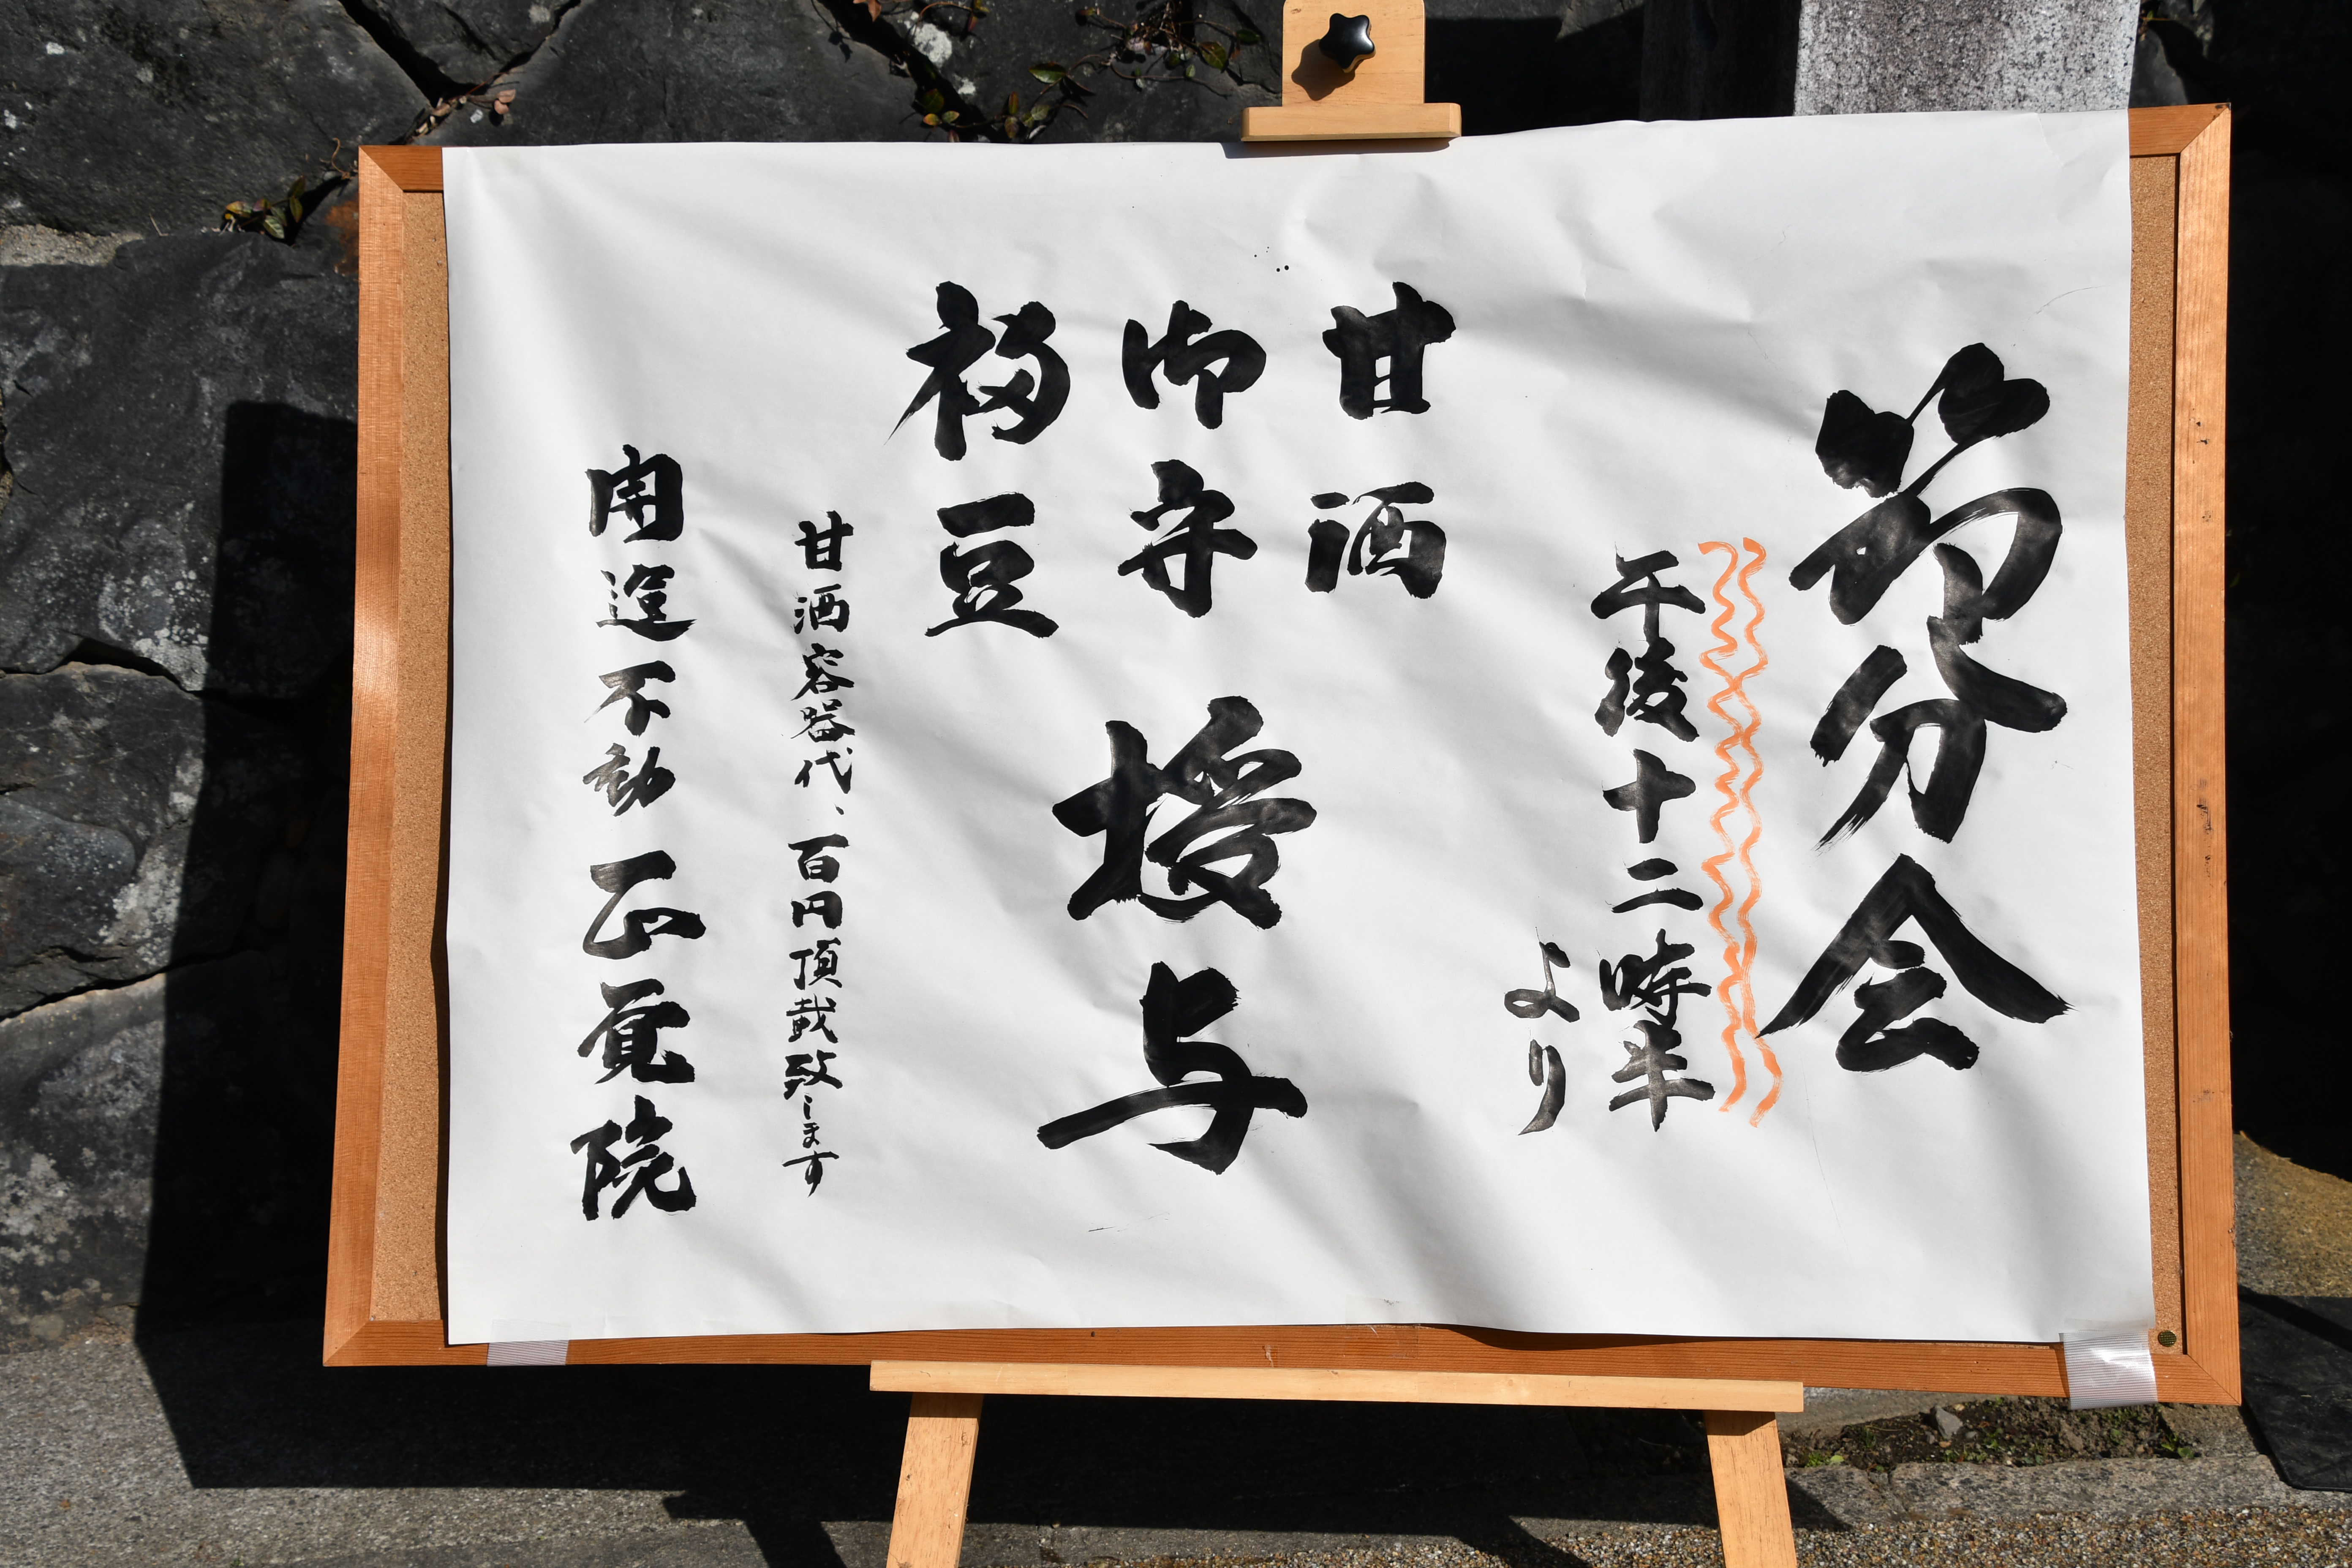 節分会
午後十二時半
より
甘酒
御守
福豆
授与
甘酒容器代、百円頂戴致します
開運不動 正覚院